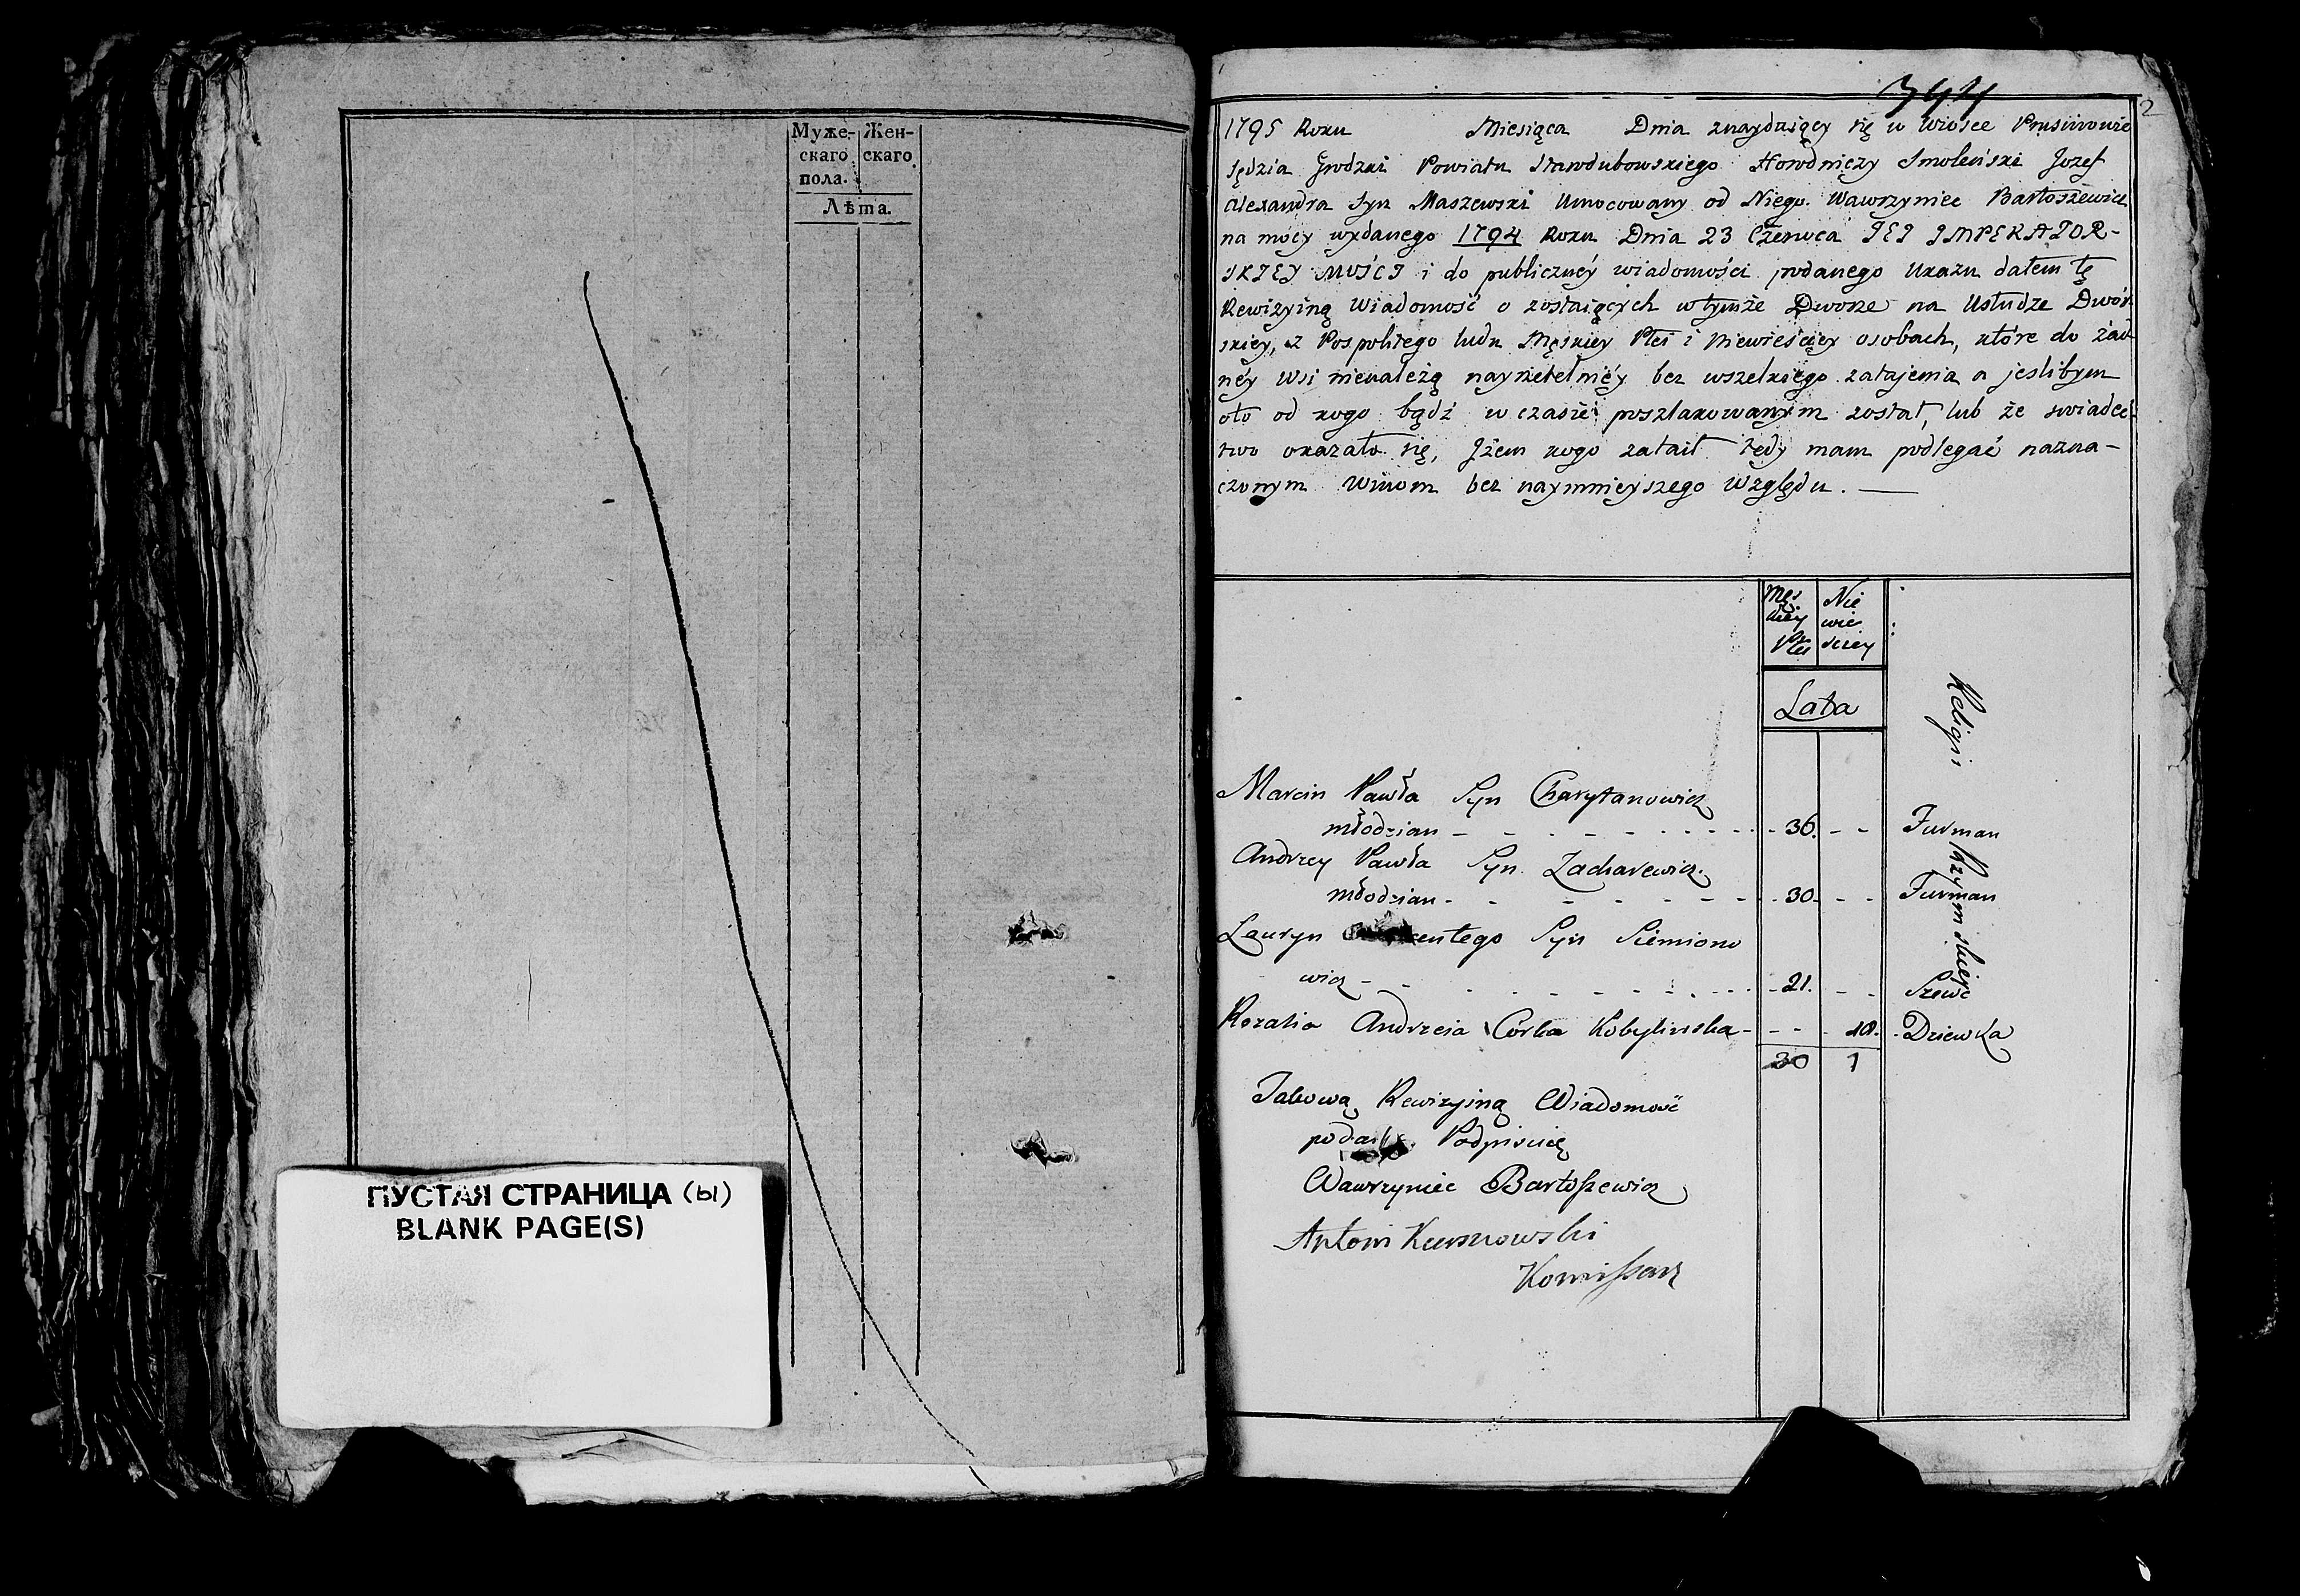 Муже- Жен-
скаго скаго
пола.
Лѣта.
ПУСТАЯ СТРАНИЦА (ы)
BLANK PAGE(S)
394
2
1795 Roku Miesiąca Dnia znayduiący się w Wiosce Prusinowie
sędzia Grodzki Powiatu Starodubowskiego Horodniczy Smoleński Jozef
Alexandra Syn Maszewski Umocowany od Niego. Wawrzyniec Bartoszewicz
na mocy wydanego 1794 Roku Dnia 23 Czerwca JEJ IMPERATOR-
SKIEY MOŚCI i do publicznéy wiadomości podanego Ukazu dałem tę
Rewizyiną Wiadomość o zostaiących w tymże Dworze na Usłudze Dwór
skiey, z Pospolitego ludu Męskiey Płci i Niewieściey osobach, które do żad
néy Wsi nienależą nayrzetelniéy bez wszelkiego zatajenia a jeslibym
oto od kogo bądź w czasie poszlakowanym został, lub że swiadec
two okazało się, Jżem kogo zataił tedy mam podlegać nazna-
czonym Winom bez naymnieyszego Względu. —
Męs Nie
kiey wie
Płci sciey
Lata
Religii Rzymskiey
Marcin Pawła Syn Charytanowicz
młodzian - - - - - - - - 36. - - Furman
Andrzey Pawła Syn Zacharewicz.
młodzian - - - - - - - 30. - - Furman
Lauryn entego Syn Siemiono
wicz - - - - - - - - 21. - - Szewc
Rozalia Andrzeia Corka Kobylinska - - - 18. Dziewka
30 1
Takową Rewizyiną Wiadomość
Podpisuię
Wawrzyniec Bartoszewicz
Antoni
Komissarz